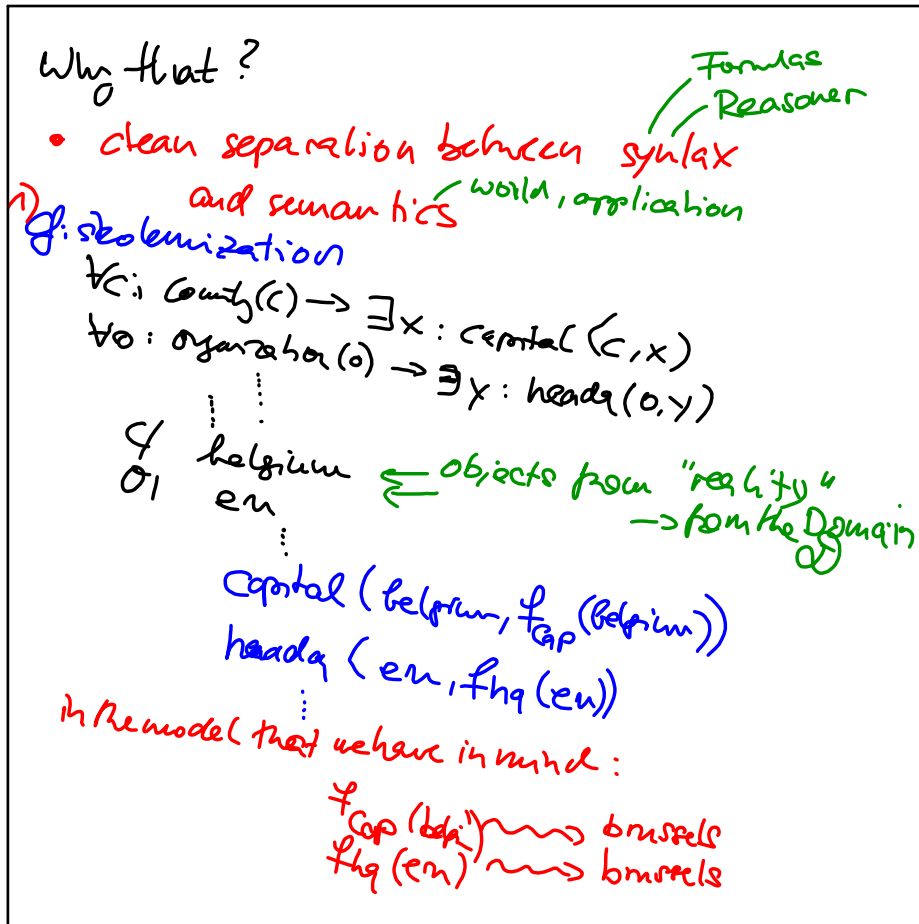 Why that?
Formulas
Reasoner
• clean separation between syntax
and semantics world, application
1)
cf. skolemization
∀c: country(c) → ∃x: capital(c,x)
∀o: organization(o) → ∃y: headq(o,y)
c/ belgium
o/ eu
⇐ objects from "reality"
→ from the Domain
capital(belgium, f_cap(belgium))
headq(eu, f_hq(eu))
in the model that we have in mind:
f_cap(belgi.) → brussels
f_hq(eu) → brussels